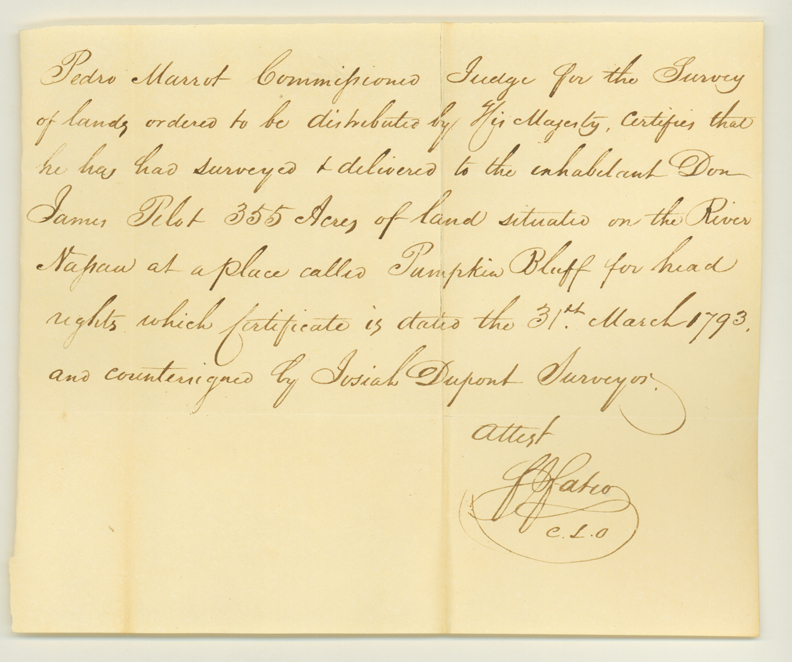 Pedro Marrot Commissioned Judge for the Survey
of lands ordered to be distributed by His Majesty, Certifies that
he has had surveyed & delivered to the inhabetant Don
James Pelot 355 Acres of land situated on the River
Nassau at a place called Pumpkin Bluff for head
rights which Certificate is dated the 31st. March 1793.
and countersigned by Josiah Dupont Surveyor.
Attest
F J Fatio
C. L. O